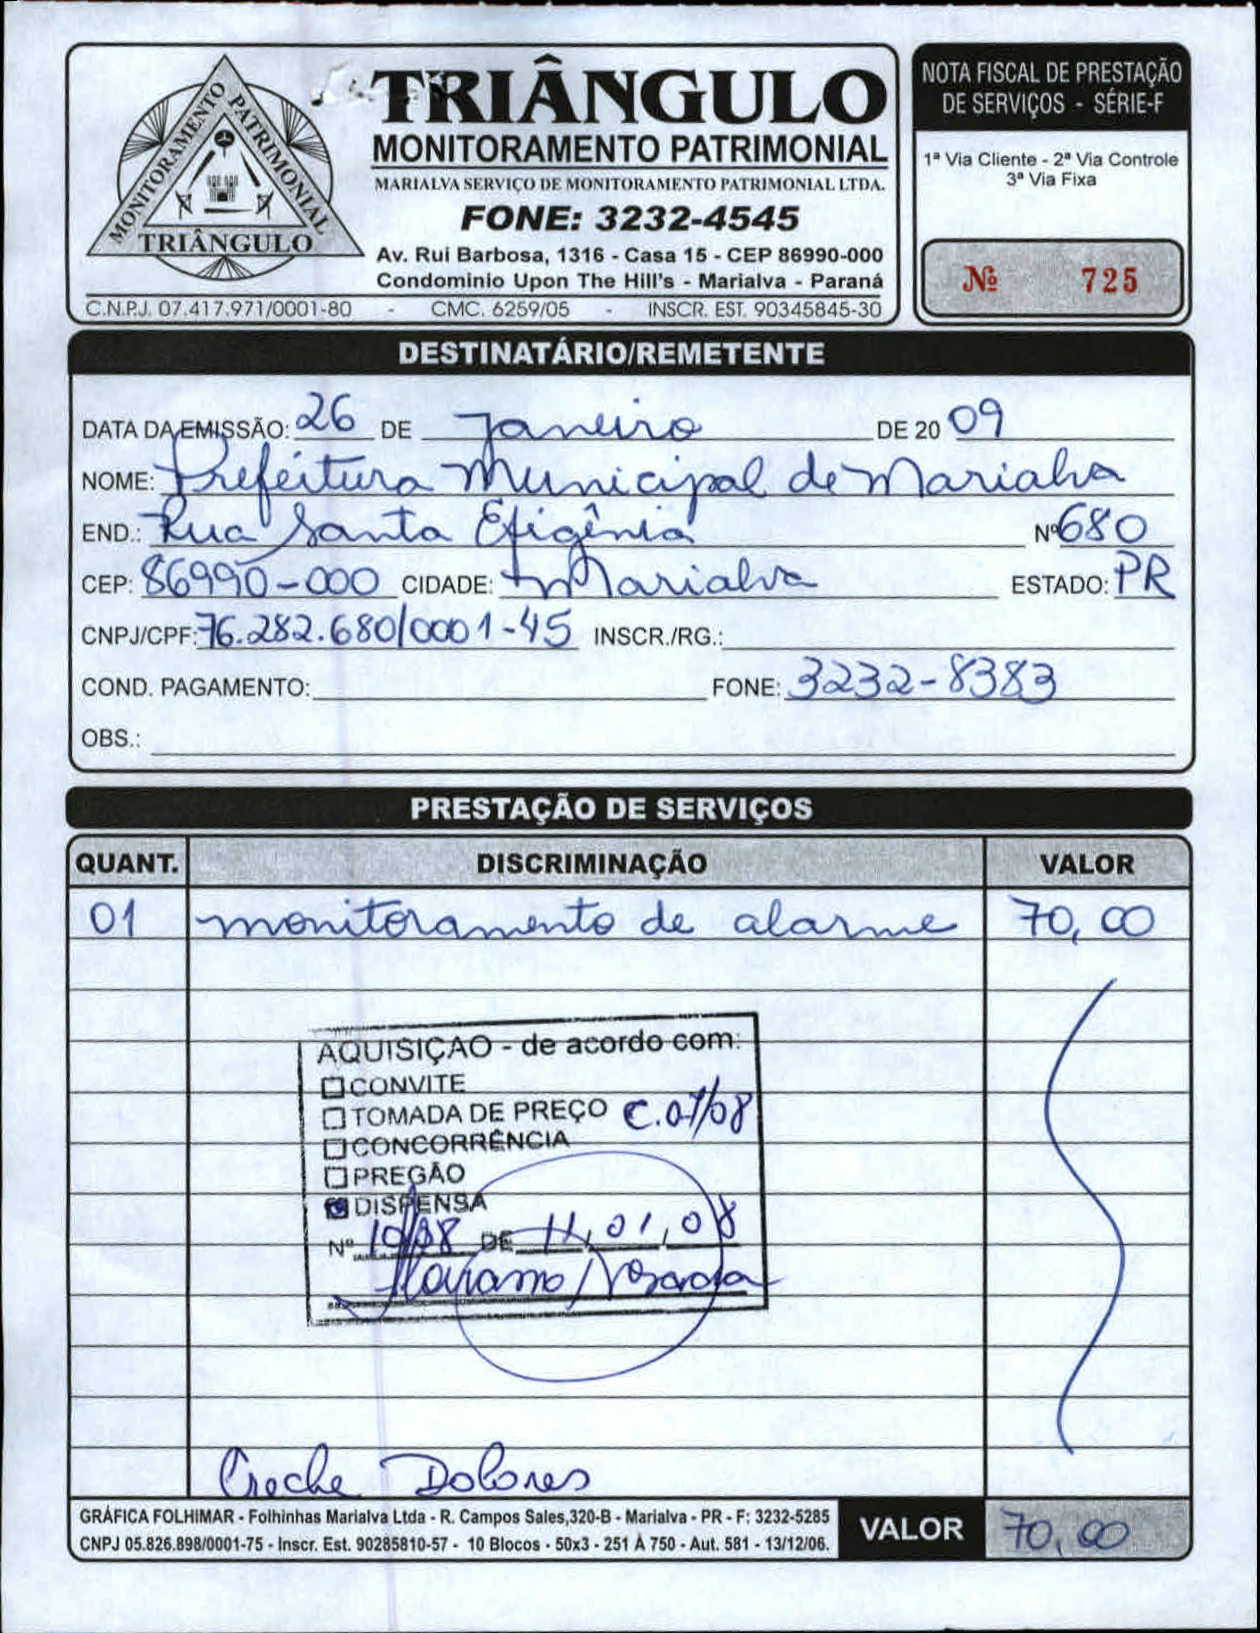 MONITORAMENTO PATRIMONIAL
TRIÂNGULO
TRIÂNGULO
MONITORAMENTO PATRIMONIAL
MARIALVA SERVIÇO DE MONITORAMENTO PATRIMONIAL LTDA.
FONE: 3232-4545
Av. Rui Barbosa, 1316 - Casa 15 - CEP 86990-000
Condominio Upon The Hill's - Marialva - Paraná
C.N.P.J. 07.417.971/0001-80 - CMC. 6259/05 - INSCR. EST. 90345845-30
NOTA FISCAL DE PRESTAÇÃO
DE SERVIÇOS - SÉRIE-F
1ª Via Cliente - 2ª Via Controle
3ª Via Fixa
Nº 725
DESTINATÁRIO/REMETENTE
DATA DA EMISSÃO: 26 DE Janeiro DE 20 09
NOME: Prefeitura Municipal de Marialva
END.: Rua Santa Efigênia Nº 680
CEP: 86990-000 CIDADE: Marialva ESTADO: PR
CNPJ/CPF: 76.282.680/0001-45 INSCR./RG.:
COND. PAGAMENTO: FONE: 3232-8383
OBS.:
PRESTAÇÃO DE SERVIÇOS
QUANT. DISCRIMINAÇÃO VALOR
01 monitoramento de alarme 70,00
AQUISIÇÃO - de acordo com:
CONVITE
TOMADA DE PREÇO C.07/08
CONCORRÊNCIA
PREGÃO
DISPENSA
Nº 10/08 DE 11,01,08
Creche Dolores
GRÁFICA FOLHIMAR - Folhinhas Marialva Ltda - R. Campos Sales,320-B - Marialva - PR - F: 3232-5285
CNPJ 05.826.898/0001-75 - Inscr. Est. 90285810-57 - 10 Blocos - 50x3 - 251 À 750 - Aut. 581 - 13/12/06.
VALOR 70,00